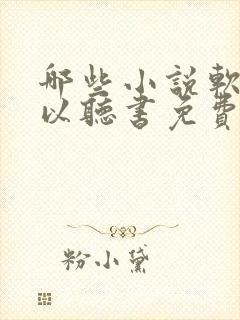 哪些小說軟
以聽書免費
粉小黛